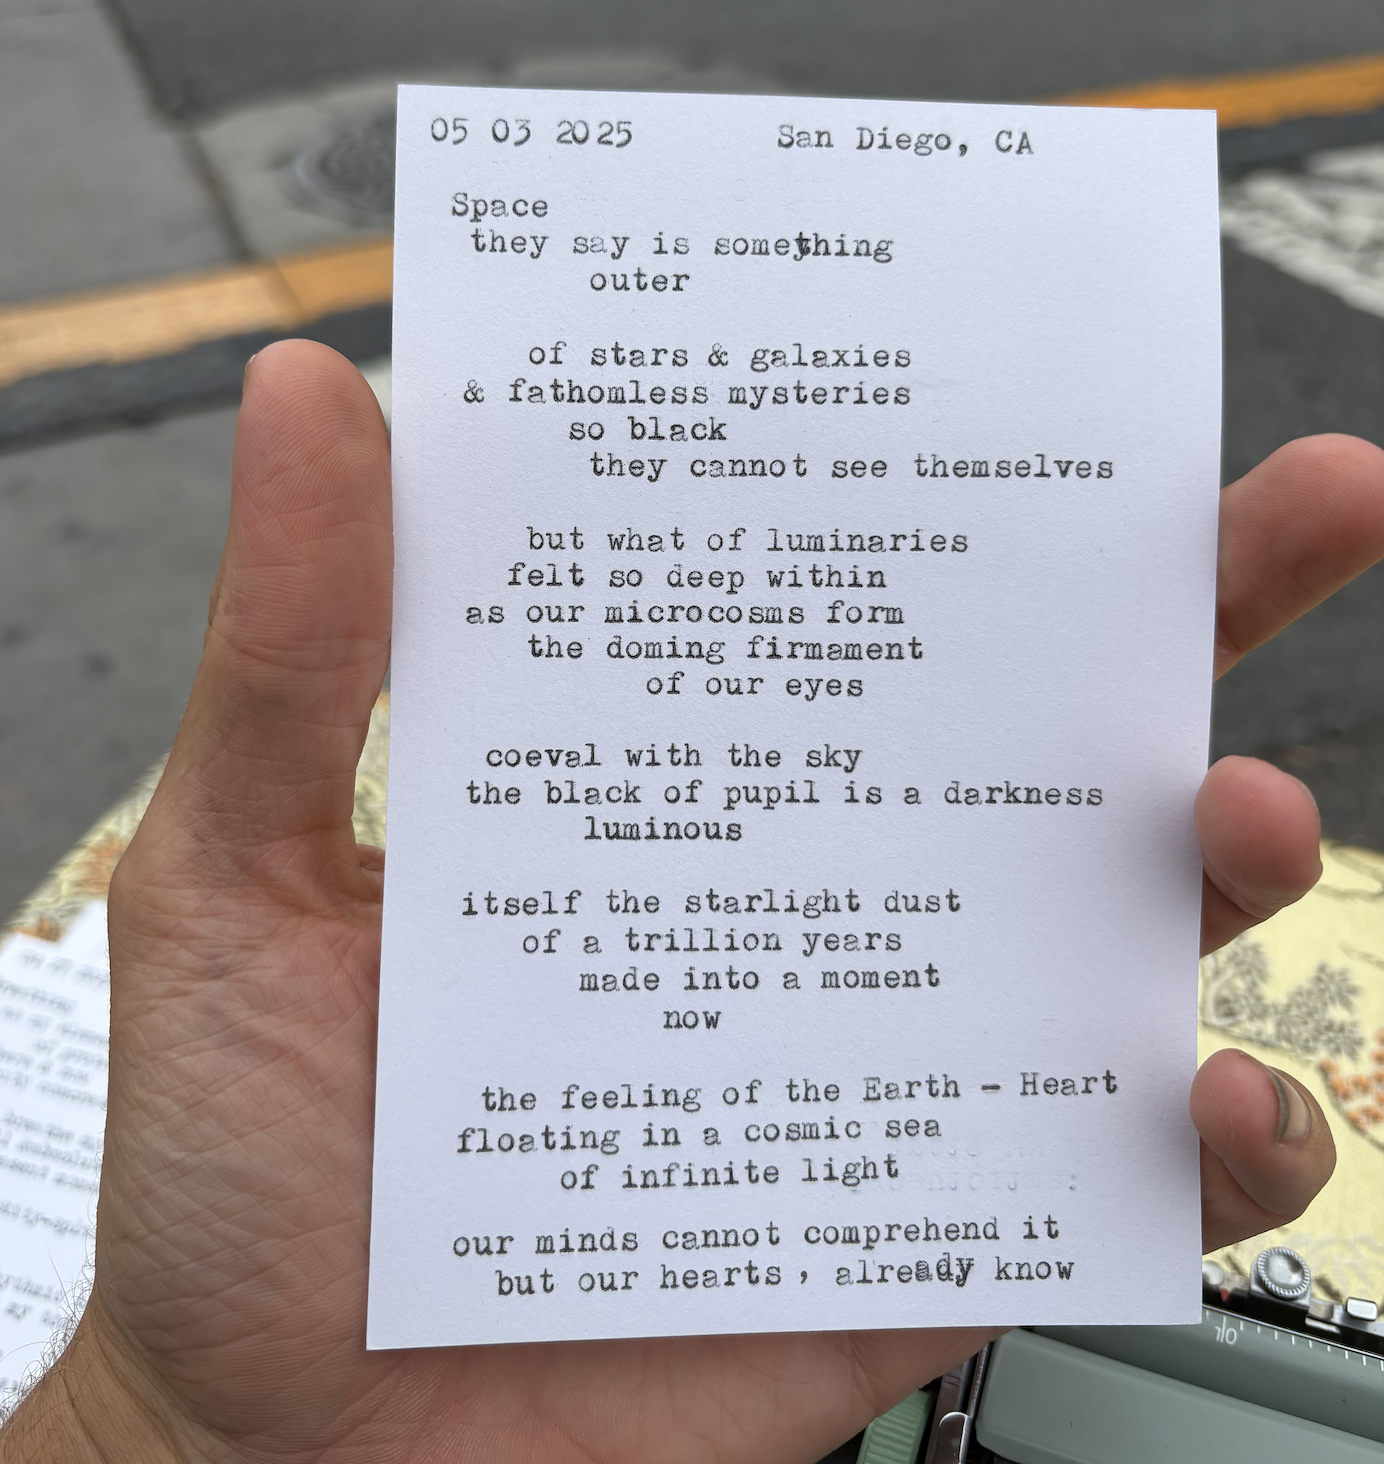 05 03 2025 San Diego, CA
Space
they say is something
outer
of stars & galaxies
& fathomless mysteries
so black
they cannot see themselves
but what of luminaries
felt so deep within
as our microcosms form
the doming firmament
of our eyes
coeval with the sky
the black of pupil is a darkness
luminous
itself the starlight dust
of a trillion years
made into a moment
now
the feeling of the Earth - Heart
floating in a cosmic sea
of infinite light
our minds cannot comprehend it
but our hearts , already know
70